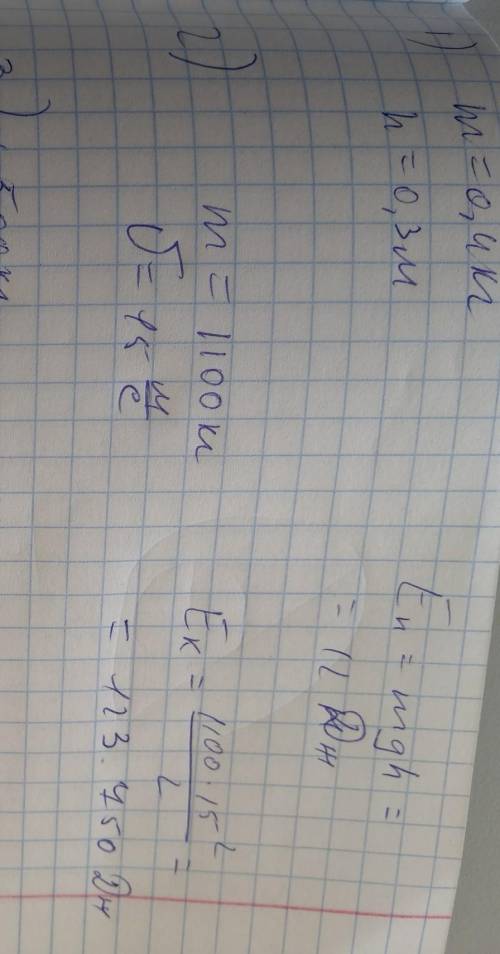 1)
m = 0,4 кг
h = 0,3 м
Eп = mgh =
= 12 Дж
2)
m = 1100 кг
υ = 15 м/с
Eк = 1100·15²/2 =
= 123.750 Дж
3)